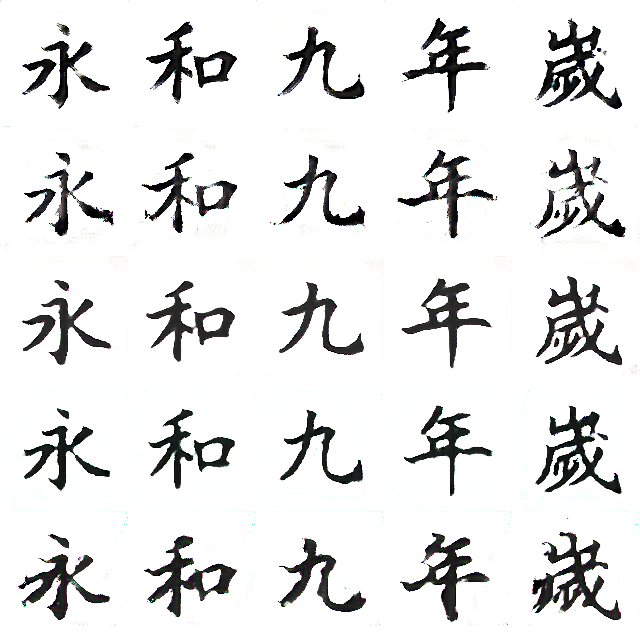 永和九年歲
永和九年歲
永和九年歲
永和九年歲
永和九年歲